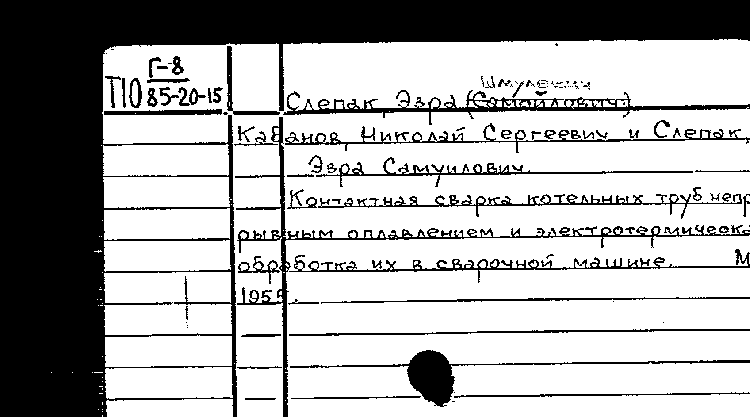 Г-8
П10 85-20-15
Шмулевич
Слепак, Эзра (Самойлович)
Кабанов, Николай Сергеевич и Слепак,
Эзра Самуилович.
Контактная сварка котельных труб непр
рывным оплавлением и электротермическа
обработка их в сварочной машине. М
195